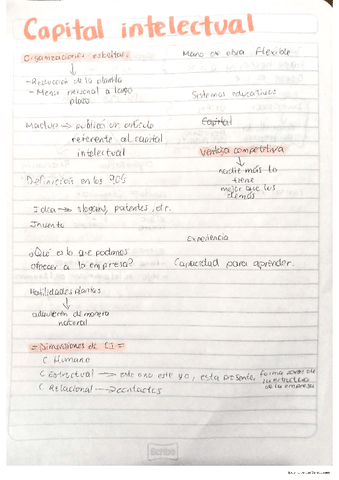 Capital intelectual
Organizaciones esbeltas
- Reducción de la planta
- Menos personal a largo
plazo
publicó un artículo
referente al capital
intelectual
Definición en los 90s
Idea → slogans, patentes, etc.
Invento
¿Qué es lo que podemos
ofrecer a la empresa?
Habilidades
adquieren de manera
natural
= Dimensiones de CI =
C Humano
C Estructual → este o no este yo, esta presente, forma de
la estructura
de la empresa
C Relacional → contactos
Mano de obra flexible
Sistemas educativos
Capital
Ventaja competitiva
nadie más lo
tiene
mejor que los
demás
Experiencia
Capacidad para aprender.
Scribe